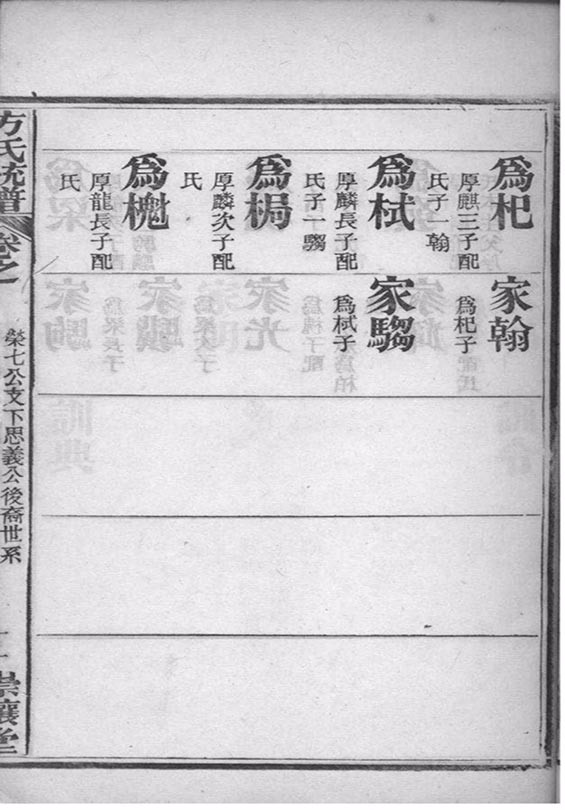 為杞
厚麒三子配
氏子一翰
為栻
厚麟長子配
氏子一騶
為梮
厚麟次子配
氏
為櫆
厚龍長子配
氏
家翰
為杞子
家騶
為栻子
方氏統譜
卷之
榮七公支下思義公後裔世系
崇讓堂